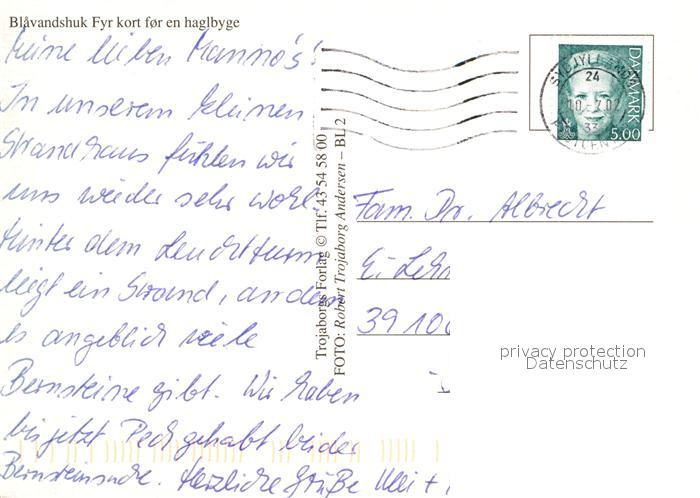 Blåvandshuk Fyr kort før en haglbyge
Meine lieben Manno's!
In unserem kleinen
Strandhaus fühlen wir
uns wieder sehr wohl.
Hinter dem Leuchtturm
liegt ein Strand, an dem
es angeblich viele
Bernsteine gibt. Wir haben
bis jetzt Pech gehabt bei der
Bernsteinsuche. Herzliche Grüße Uli +
Trojaborgs Forlag © Tlf. 43 54 58 00
FOTO: Robert Trojaborg Andersen – BL 2
24
33
DANMARK
5.00
Fam. Dr. Albrecht
39100
privacy protection
Datenschutz